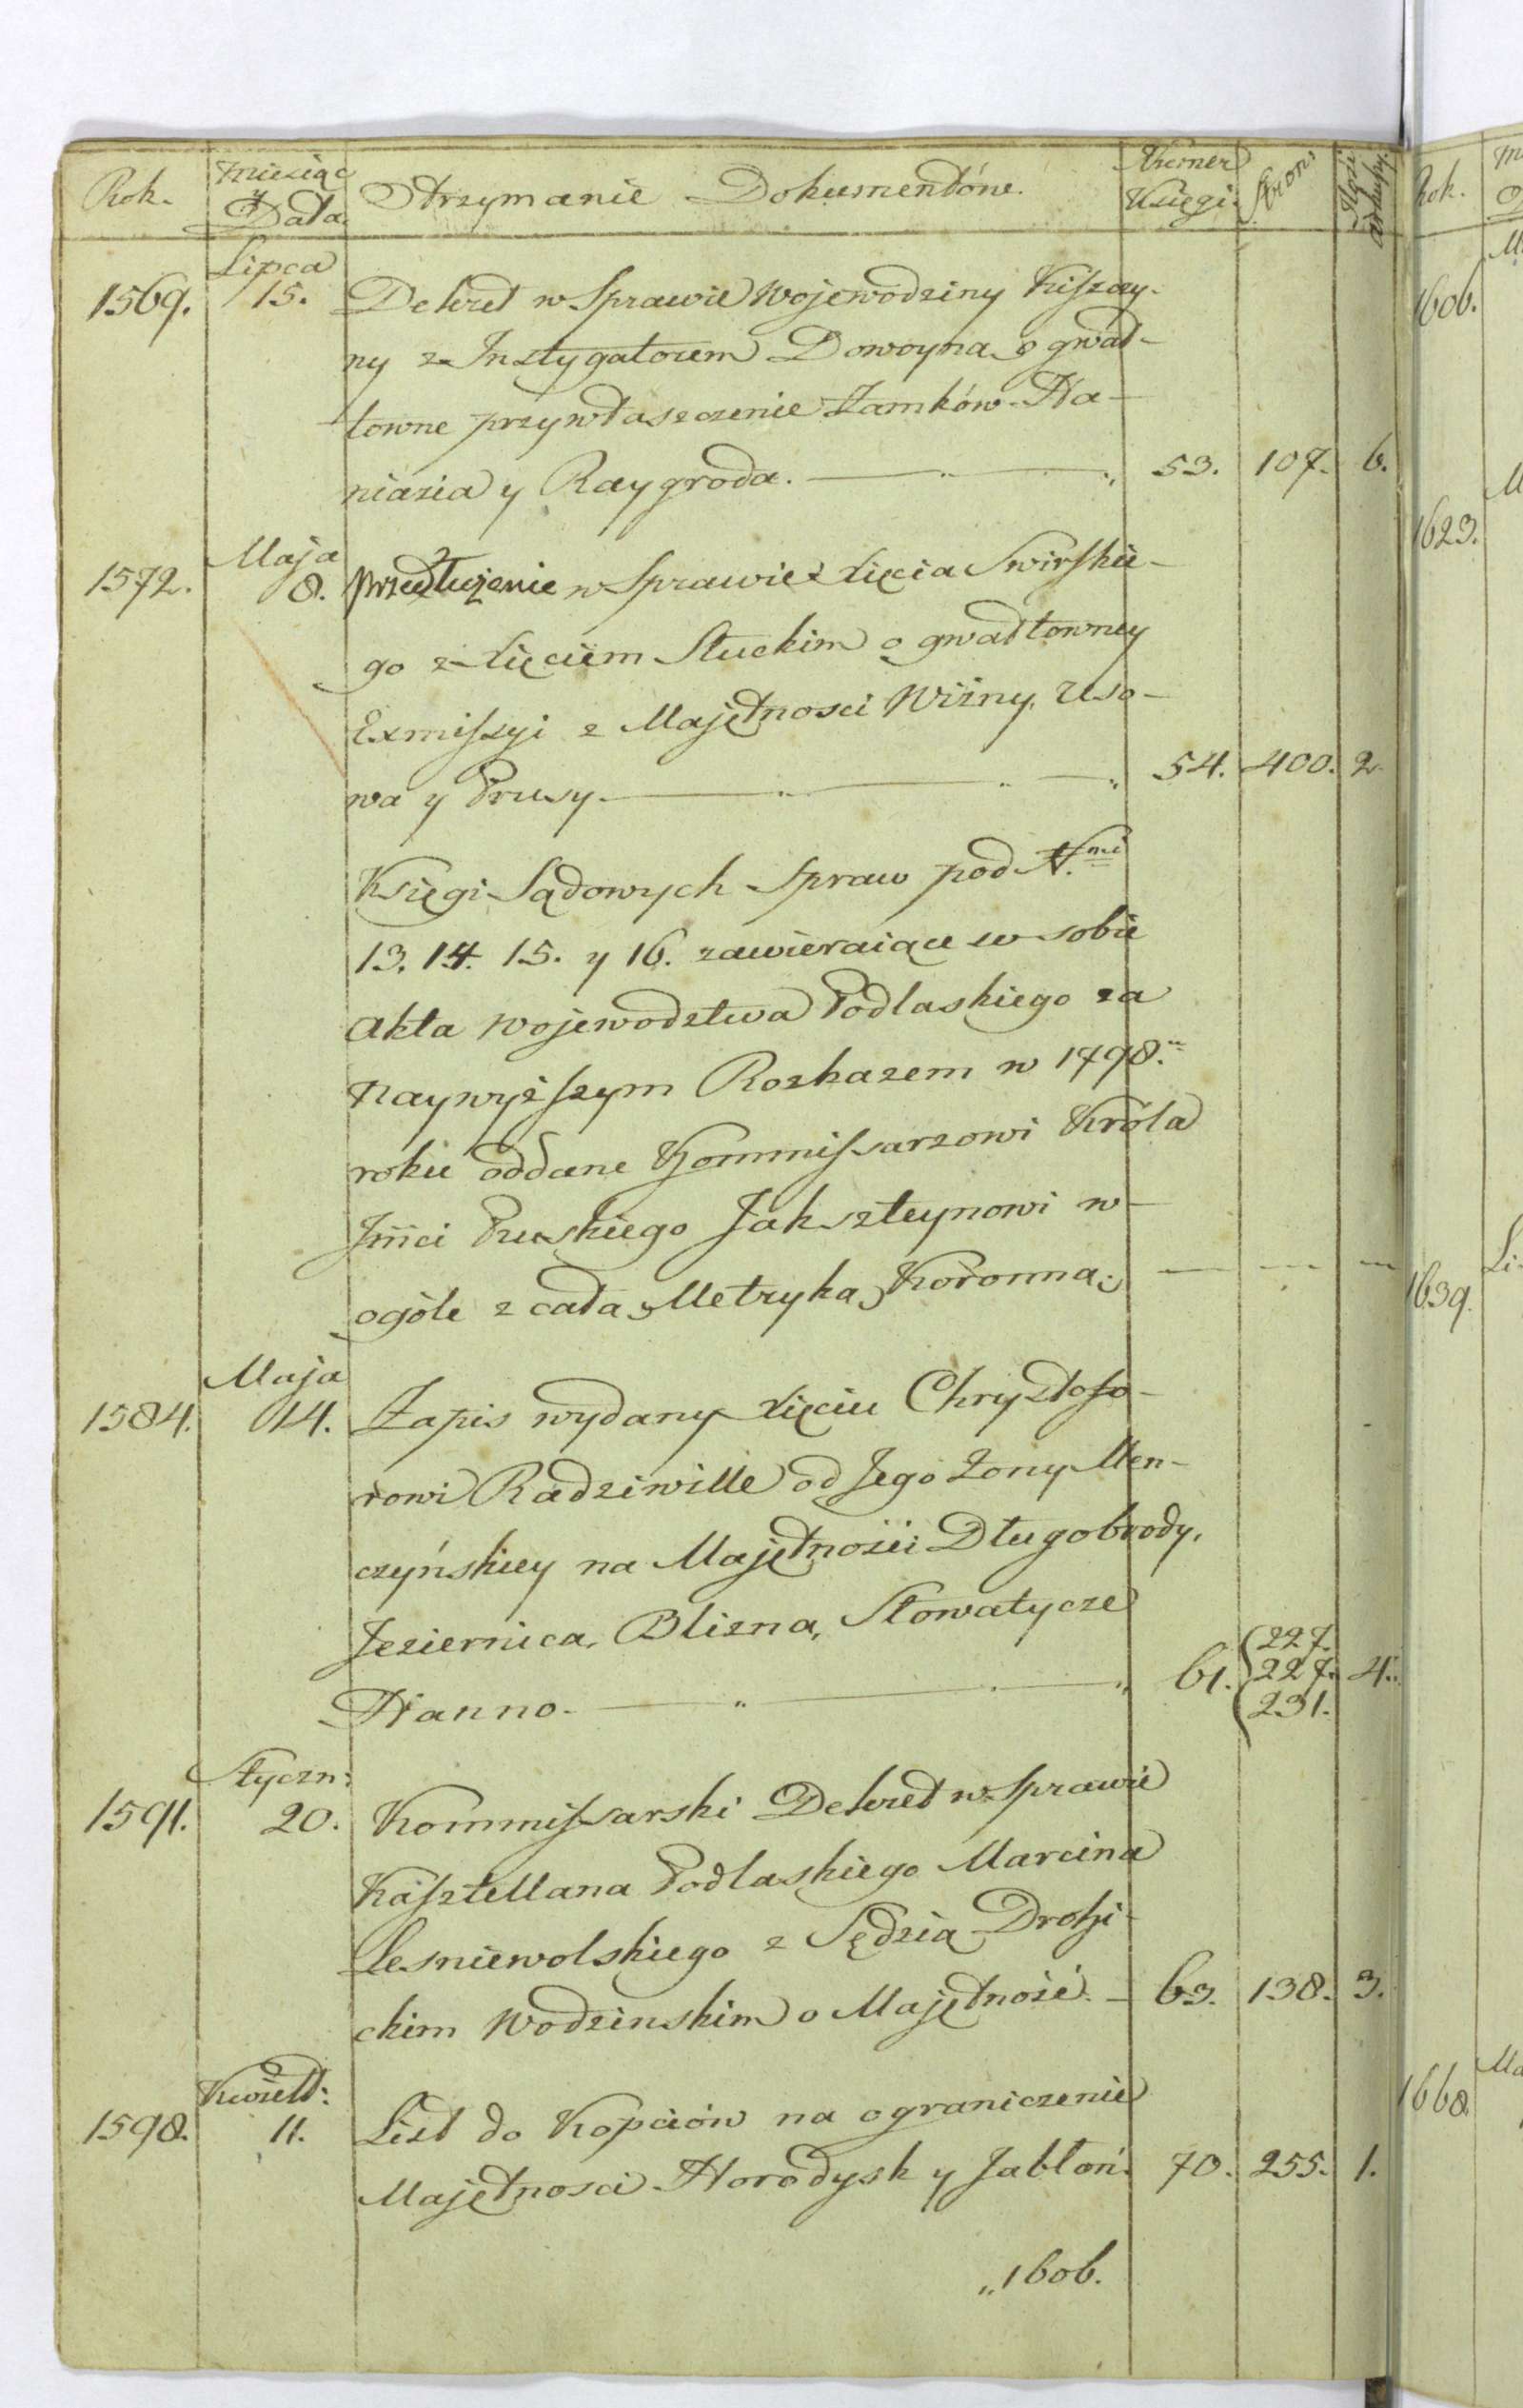 Rok. Miesiąc y Data Otrzymanie Dokumentów. Numer Księgi. Stron. Ilość arkuszy.
Lipca
1569. 15. Dekret w Sprawie Wojewodziny Kiszczy-
ny z Instygatorem Dowoyna o gwał-
towne przywłaszczenie Zamków Ha-
niazia y Raygroda. 53. 107. 6.
Maja
1572. 8. przedłużenie w Sprawie Xięcia Swirskie-
go z Xięciem Słuckim o gwałtowney
Exmissyi z Majętnosci Wizny, Uso-
wa y Prusy. 54. 400. 2.
Księgi Sądowych Spraw pod N.mi
13. 14. 15. y 16. zawieraiące w sobie
Akta Wojewodztwa Podlaskiego za
Naywyższym Rozkazem w 1798.
roku oddane Kommissarzowi Króla
Jmci Pruskiego Jakszteynowi w
ogóle z całą Metryką Koronną;
Maja
1584. 14. Zapis wydany Xięciu Chrysztofo-
rowi Radziwille od Jego Zony Men-
czyńskiey na Majętności Długobrody,
Jeziernica, Blizna, Słowatycze
227.
Hanno. 61. 227. 4.
231.
Styczn:
1591. 20. Kommissarski Dekret w Sprawie
Kasztellana Podlaskiego Marcina
Lesniewolskiego z Sędzią Drohi-
ckim Wodzinskim o Majętność. 63. 138. 3.
Kwiet:
1598. 11. List do Kopciów na ograniczenie
Majętnosci Horodysk y Jabłoń. 70. 255. 1.
„1606.
Rok.
1606.
1623.
1639.
1668.